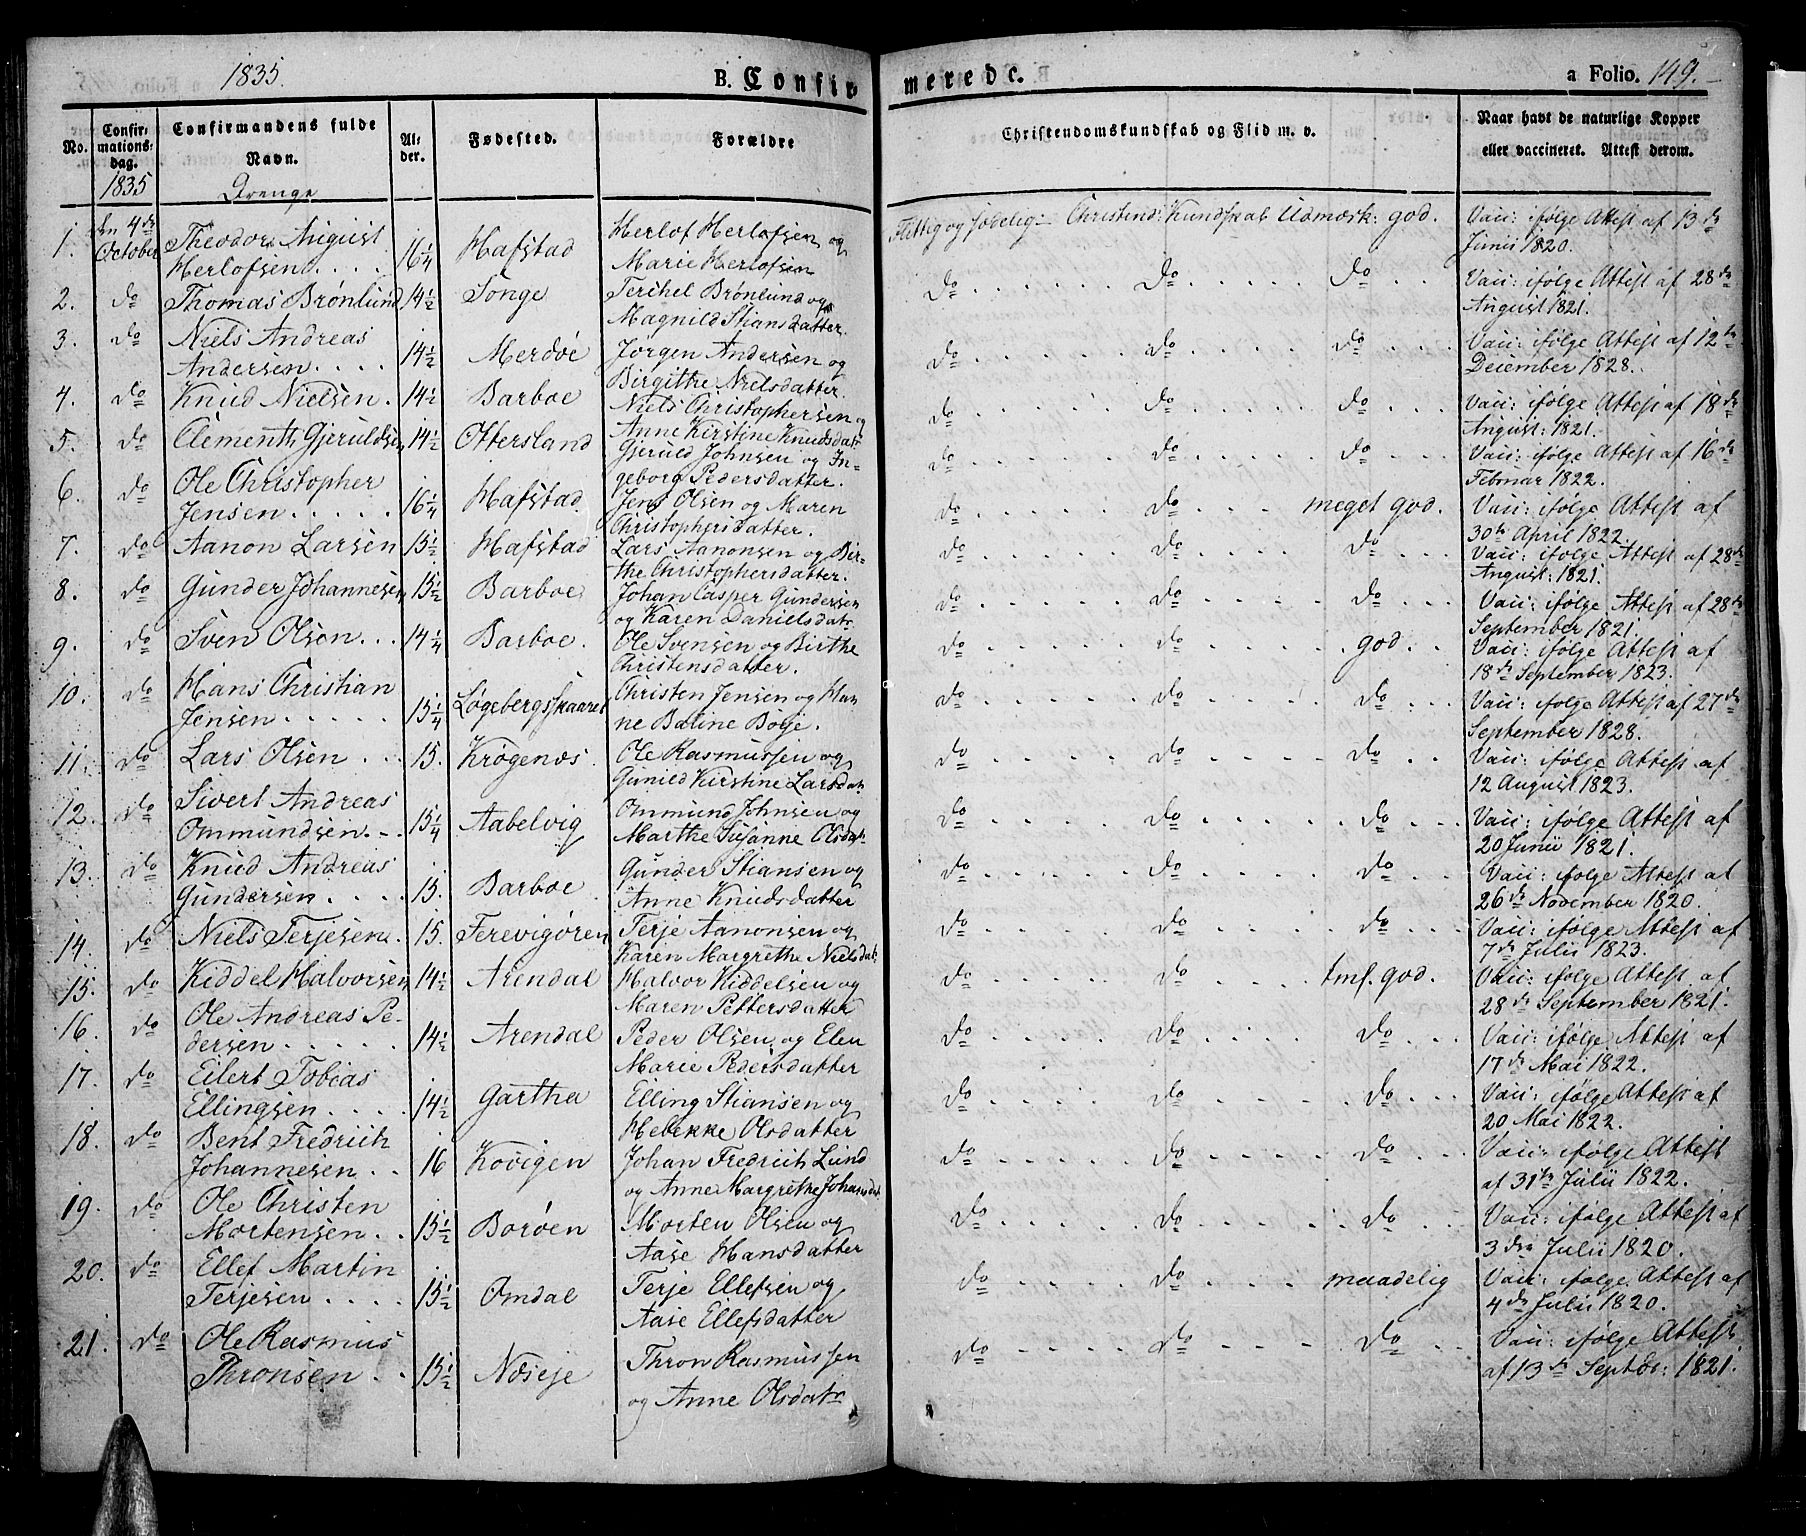 1835. B. Confirmerede. a Folio. 149.
No. Confirmationsdag. Confirmandens fulde Navn. Alder. Fødested. Forældre Christendomskundskab og Flid m. v. Naar havt de naturlige Kopper eller vaccineret. Attest derom.
1835 Drenge
1. den 4de October Theodor August Herlofsen 16 1/4 Hafstad Herlof Herlofsen og Marie Herlofsen Flittig og sædelig - Christend: Kundskab Udmærk: god. Vacc: ifølge Attest af 13de Junii 1820.
2. do Thomas Brønlund 14 1/2 Songe Terchel Brønlund og Magnild Stiansdatter do do do Vacc: ifølge Attest af 28de August 1821.
3. do Niels Andreas Andersen 14 1/2 Merdøe Jørgen Andersen og Birgithe Nielsdatter do do do Vacc: ifølge Attest af 12te December 1828.
4. do Knud Nielsen 14 1/2 Barboe Niels Christophersen og Anne Kirstine Knudsdatr do do do Vacc: ifølge Attest af 18de August: 1821.
5. do Clementh Gjeruldsen 14 1/2 Ottersland Gjeruld Johnsen og Ingeborg Pedersdatter. do do do Vacc: ifølge Attest af 16de Februar 1822.
6. do Ole Christopher Jensen 16 1/4 Hafstad Jens Olsen og Maren Christophersdatter. do do meget god. Vacc: ifølge Attest af 30te April 1822.
7. do Aanon Larsen 15 1/2 Hafstad Lars Aanonsen og Birthe Christophersdatter. do do do Vacc: ifølge Attest af 28de August: 1821.
8. do Gunder Johannesen 15 1/2 Barboe Johan Casper Gundersen og Karen Danielsdatr do do do Vacc: ifølge Attest af 28de September 1821.
9. do Sven Olsen 14 1/4 Barboe. Ole Svensen og Birthe Christensdatter. do do god. Vacc: ifølge Attest af 18de September 1823.
10. do Hans Christian Jensen 15 1/4 Løgebergsskaaret Christen Jensen og Hanne Boje. do do do Vacc: ifølge Attest af 27de September 1828.
11. do Lars Olsen 15. Krøgenæs. Ole Rasmussen og Gunild Kirstine Larsdatr do do do Vacc: ifølge Attest af 12 August 1823.
12. do Sivert Andreas Ommundsen 15 1/4 Aabelvig Ommund Johnsen og Marthe Susanne Olsdatr do do do Vacc: ifølge Attest af 20 Junii 1821.
13. do Knud Andreas Gundersen 15. Barboe Gunder Stiansen og Anne Knudsdatter do do do Vacc: ifølge Attest af 26de November 1820.
14. do Niels Terjesen 15. Ferevigøren Terje Aanonsen og Karen Margrethe Nielsdatr do do do Vacc: ifølge Attest af 7de Julii 1823.
15. do Kiddel Halvorsen 14 1/2 Arendal Halvor Kiddelsen og Maren Pettersdatter do do tml. god. Vacc: ifølge Attest af 28de September 1821.
16. do Ole Andreas Pedersen 14 1/2 Arendal Peder Olsen og Elen Marie Pedersdatter do do do Vacc: ifølge Attest af 17de Mai 1822.
17. do Eilert Tobias Ellingsen 14 1/2 Gartha Elling Stiansen og Rebekke Olsdatter do do do Vacc: ifølge Attest af 20 Mai 1822.
18. do Bent Fredrich Johannesen 16 Kovigen Johan Fredrich Lund og Anne Margrethe Johansdatr do do do Vacc: ifølge Attest af 31te Julii 1822.
19. do Ole Christen Mortensen 15 1/2 Borøen Morten Olsen og Aase Hansdatter do do do Vacc: ifølge Attest af 3die Julii 1820.
20. do Ellef Martin Terjesen 15 1/2 Omdal Terje Ellefsen og Aase Ellefsdatter do do maadelig Vacc: ifølge Attest af 4de Julii 1820.
21. do Ole Rasmus Thronsen 15 1/2 Næseje Thron Rasmussen og Anne Olsdatr do do do Vacc: ifølge Attest af 13de Septbr: 1821.